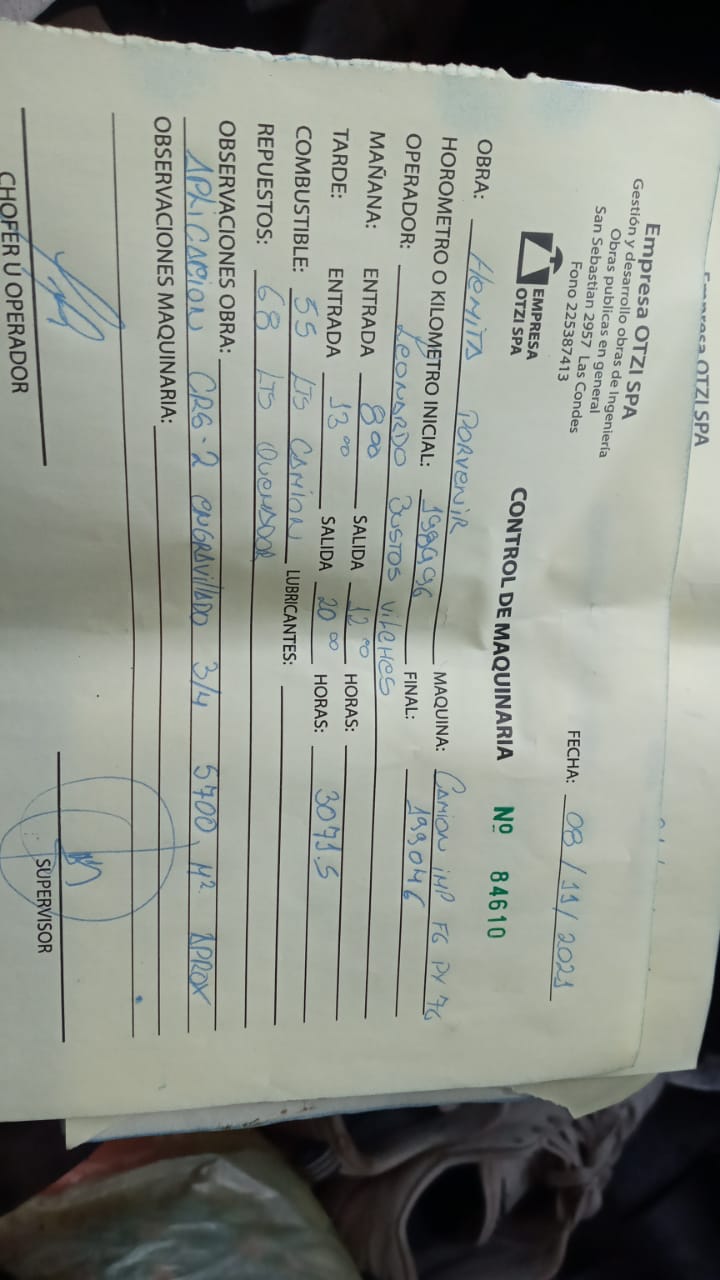 Empresa OTZI SPA
Empresa OTZI SPA
Gestión y desarrollo obras de Ingeniería
Obras publicas en general
San Sebastian 2957 Las Condes
Fono 225387413
EMPRESA
OTZI SPA
FECHA: 08/11/2021
CONTROL DE MAQUINARIA Nº 84610
OBRA: Hemita Porvenir
MAQUINA: Camion imp FG PY 76
HOROMETRO O KILOMETRO INICIAL: 198996 FINAL: 199046
OPERADOR: Leonardo Bustos Vilches
MAÑANA: ENTRADA 8:00 SALIDA 12:00 HORAS:
TARDE: ENTRADA 13:00 SALIDA 20:00 HORAS: 3071.5
COMBUSTIBLE: 55 LTS CAMION LUBRICANTES:
REPUESTOS: 68 LTS QUEMADOR
OBSERVACIONES OBRA:
APLICACION CRS-2 ENGRAVILLADO 3/4 5700 M2. APROX
OBSERVACIONES MAQUINARIA:
CHOFER U OPERADOR
SUPERVISOR